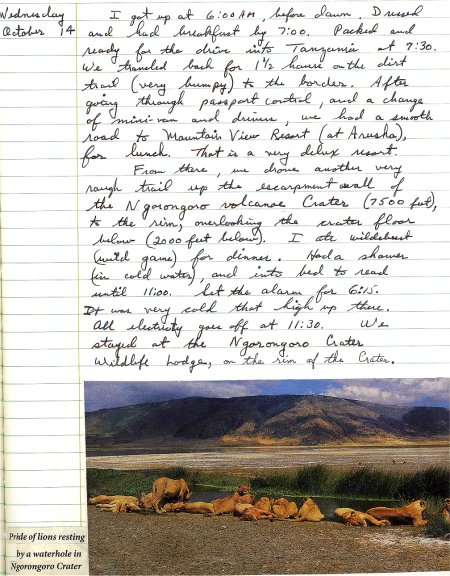 Wednesday
October 14
I got up at 6:00 AM, before dawn. Dressed
and had breakfast by 7:00. Packed and
ready for the drive into Tanzania at 7:30.
We traveled back for 1½ hours on the dirt
trail (very bumpy) to the border. After
going through passport control, and a change
of mini-van and drivers, we had a smooth
road to Mountain View Resort (at Arusha),
for lunch. That is a very delux resort.
From there, we drove another very
rough trail up the escarpment wall of
the Ngorongoro volcanoe Crater (7500 feet),
to the rim, overlooking the crater floor
below (2000 feet below). I ate wildebeest
(wild game) for dinner. Had a shower
(in cold water), and into bed to read
until 11:00. Set the alarm for 6:15.
It was very cold that high up there.
All electricity goes off at 11:30. We
stayed at the Ngorongoro Crater
Wildlife Lodge, on the rim of the Crater.
Pride of lions resting
by a waterhole in
Ngorongoro Crater